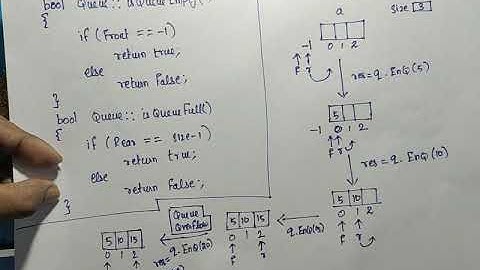 bool Queue:: isQueueEmpty()
{
if (Front == -1)
return true;
else
return False;
}
bool Queue:: isQueueFull()
{
if (Rear == size-1)
return true;
else
return False;
}
a
size 3
-1 0 1 2
F r
res=q.EnQ(5)
5
-1 0 1 2
F r
res = q.EnQ(10)
5 10
0 1 2
F r
q.EnQ(15)
5 10 15
0 1 2
F r
Queue
Overflow
res= q.EnQ(20)
5 10 15
0 1 2